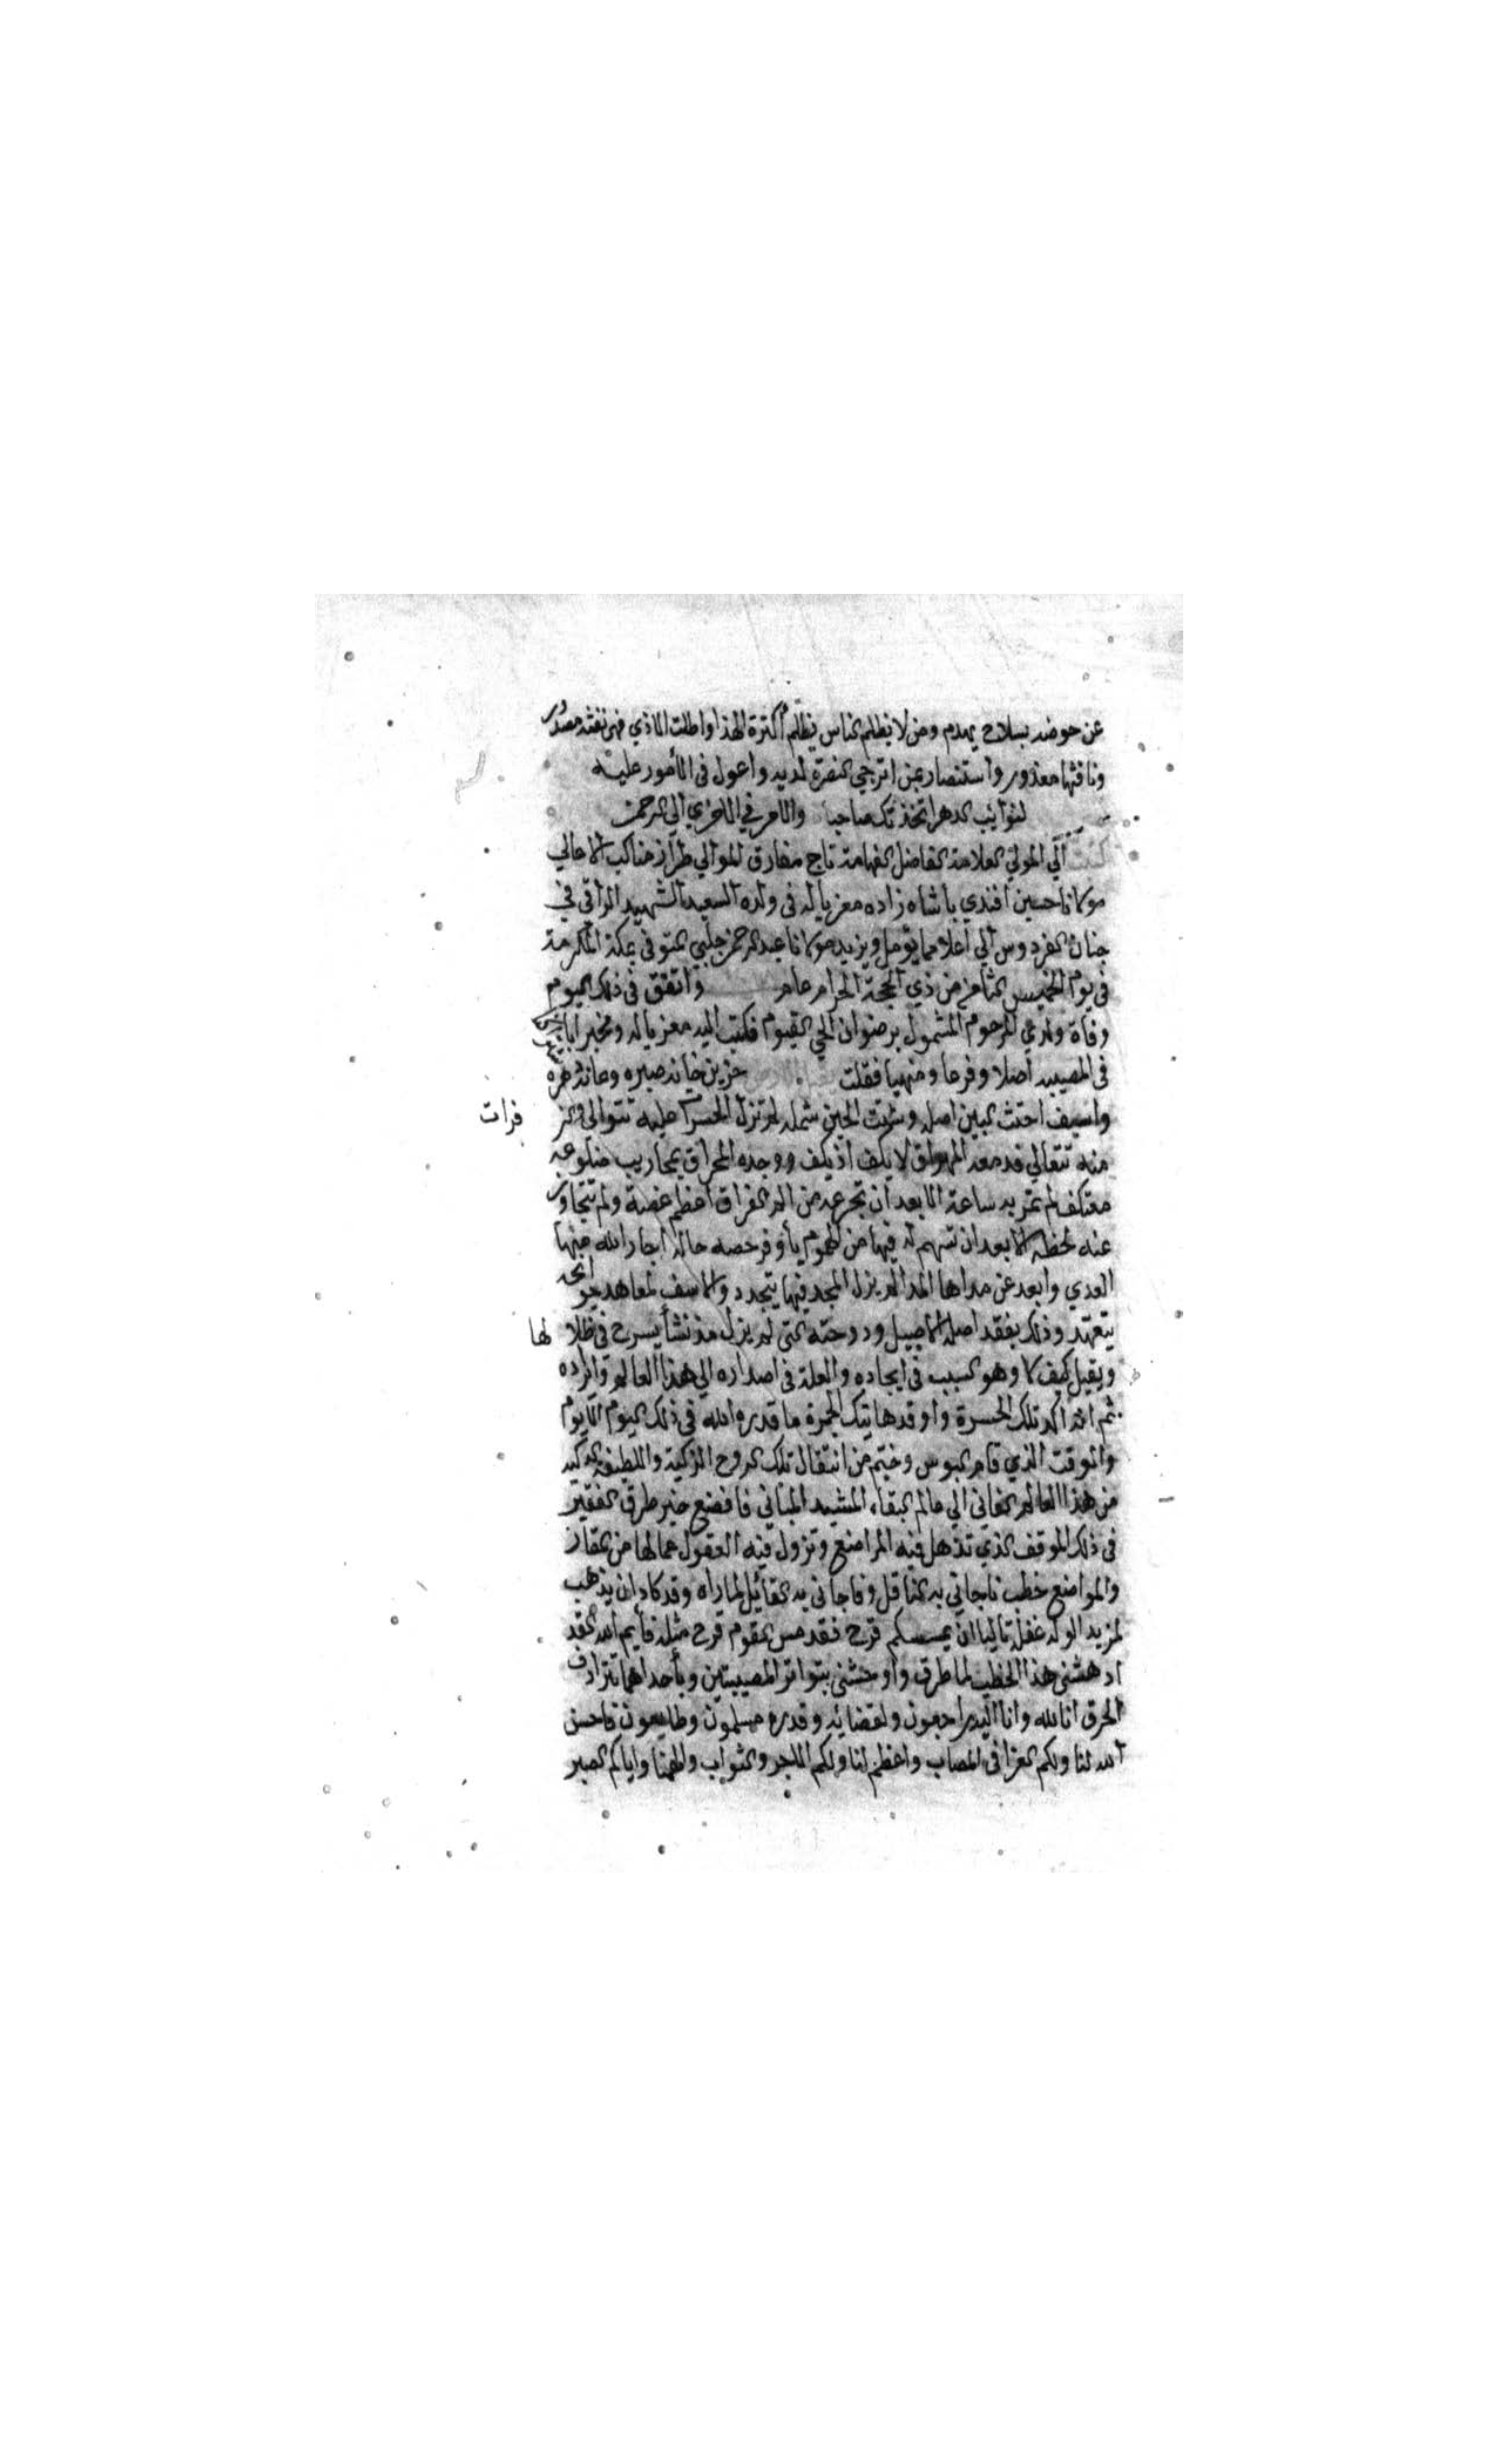 عن حوضه بسلاح يهدم ومن لا يظلم الناس يظلم اكثرة لهذا واطلت الاذي فهي نفثة مصدور
ونافثها معذور واستنصار بمن اترجي النصرة لديه واعول في الأمور عليه
لنوايب الدهر اتخذتك صاحبا والامر في الاخري الي الرحمن
كتبت الي المولي العلامة الفاضل الفهامة تاج مفارق الموالي طراز مناكب الاعالي
مولانا حسين افندي باشاه زاده معزيا له في ولده السعيد الشهيد الراقي في
جنان الفردوس الي اعلا مما يؤمل ويزيد مولانا عبد الرحمن جلبي المتوفي بمكة المكرمة
في يوم الخميس الثامن من ذي الحجة الحرام عام واتفق في ذلك اليوم
وفاة ولدي المرحوم المشمول برضوان الحي القيوم فكتبت اليه معزيا له ومخبرا
في المصيبه اصلا وفرعا ومنهيا فقلت حزين خانه صبره وعانده دهره
واسيف اجتث البين اصله وشتت الحين شمله لم تزل الحسرا عليه تتوالي
فرات
منه تتعالي فدمعه المهراق لا يكف اذ يكف ووجده المحراق بمحاريب ضلوعه
معتكف لم تمر به ساعة الا بعد ان تجرعه من الم الفراق اعظم غصة ولم تتجاوز
عنه لحظه الا بعد ان تسهم له فيها من الهموم بأوفر حصه حاله اجار الله منها
العدي وابعد عن مداها المدا لم يزل المجد فيها يتجدد والاسف لمعاهد
يتعهد وذلك بفقد اصله الاصيل ودوحته التي لم يزل مذ نشأ يسرح في ظلالها
ويقيل كيف لا وهو السبب في ايجاده والعلة في اصداره الي هذا العالم وايراده
ثم انه اكد تلك الحسرة واوقد هاتيك الجمرة ما قدره الله في ذلك اليوم الايوم
والوقت الذي قام البوس وخيم من انتقال تلك الروح الزكية واللطيفة
من هذا العالم الفاني الي عالم البقاء المشيد المباني فافضع خبر طرق الفقير
في ذلك الموقف الذي تذهل فيه المراضع وتزول فيه العقول عما لها من المقار
والمواضع خطب ناجاني به الناقل وفاجاني به القائل لما راه وقد كاد ان يذهب
لمزيد الوله عقله تاليا ان يمسسكم قرح فقد مس القوم قرح مثله فأيم الله لقد
ادهشني هذا الخطب لما طرق واوحشني بتواتر المصيبتين وبأحداهما تترادف
الحرق انا لله وانا اليه راجعون ولقضائه وقدره مسلمون وطايعون فاحسن
الله لنا ولكم العزا في المصاب واعظم لنا ولكم الاجر والثواب والهمنا واياكم الصبر